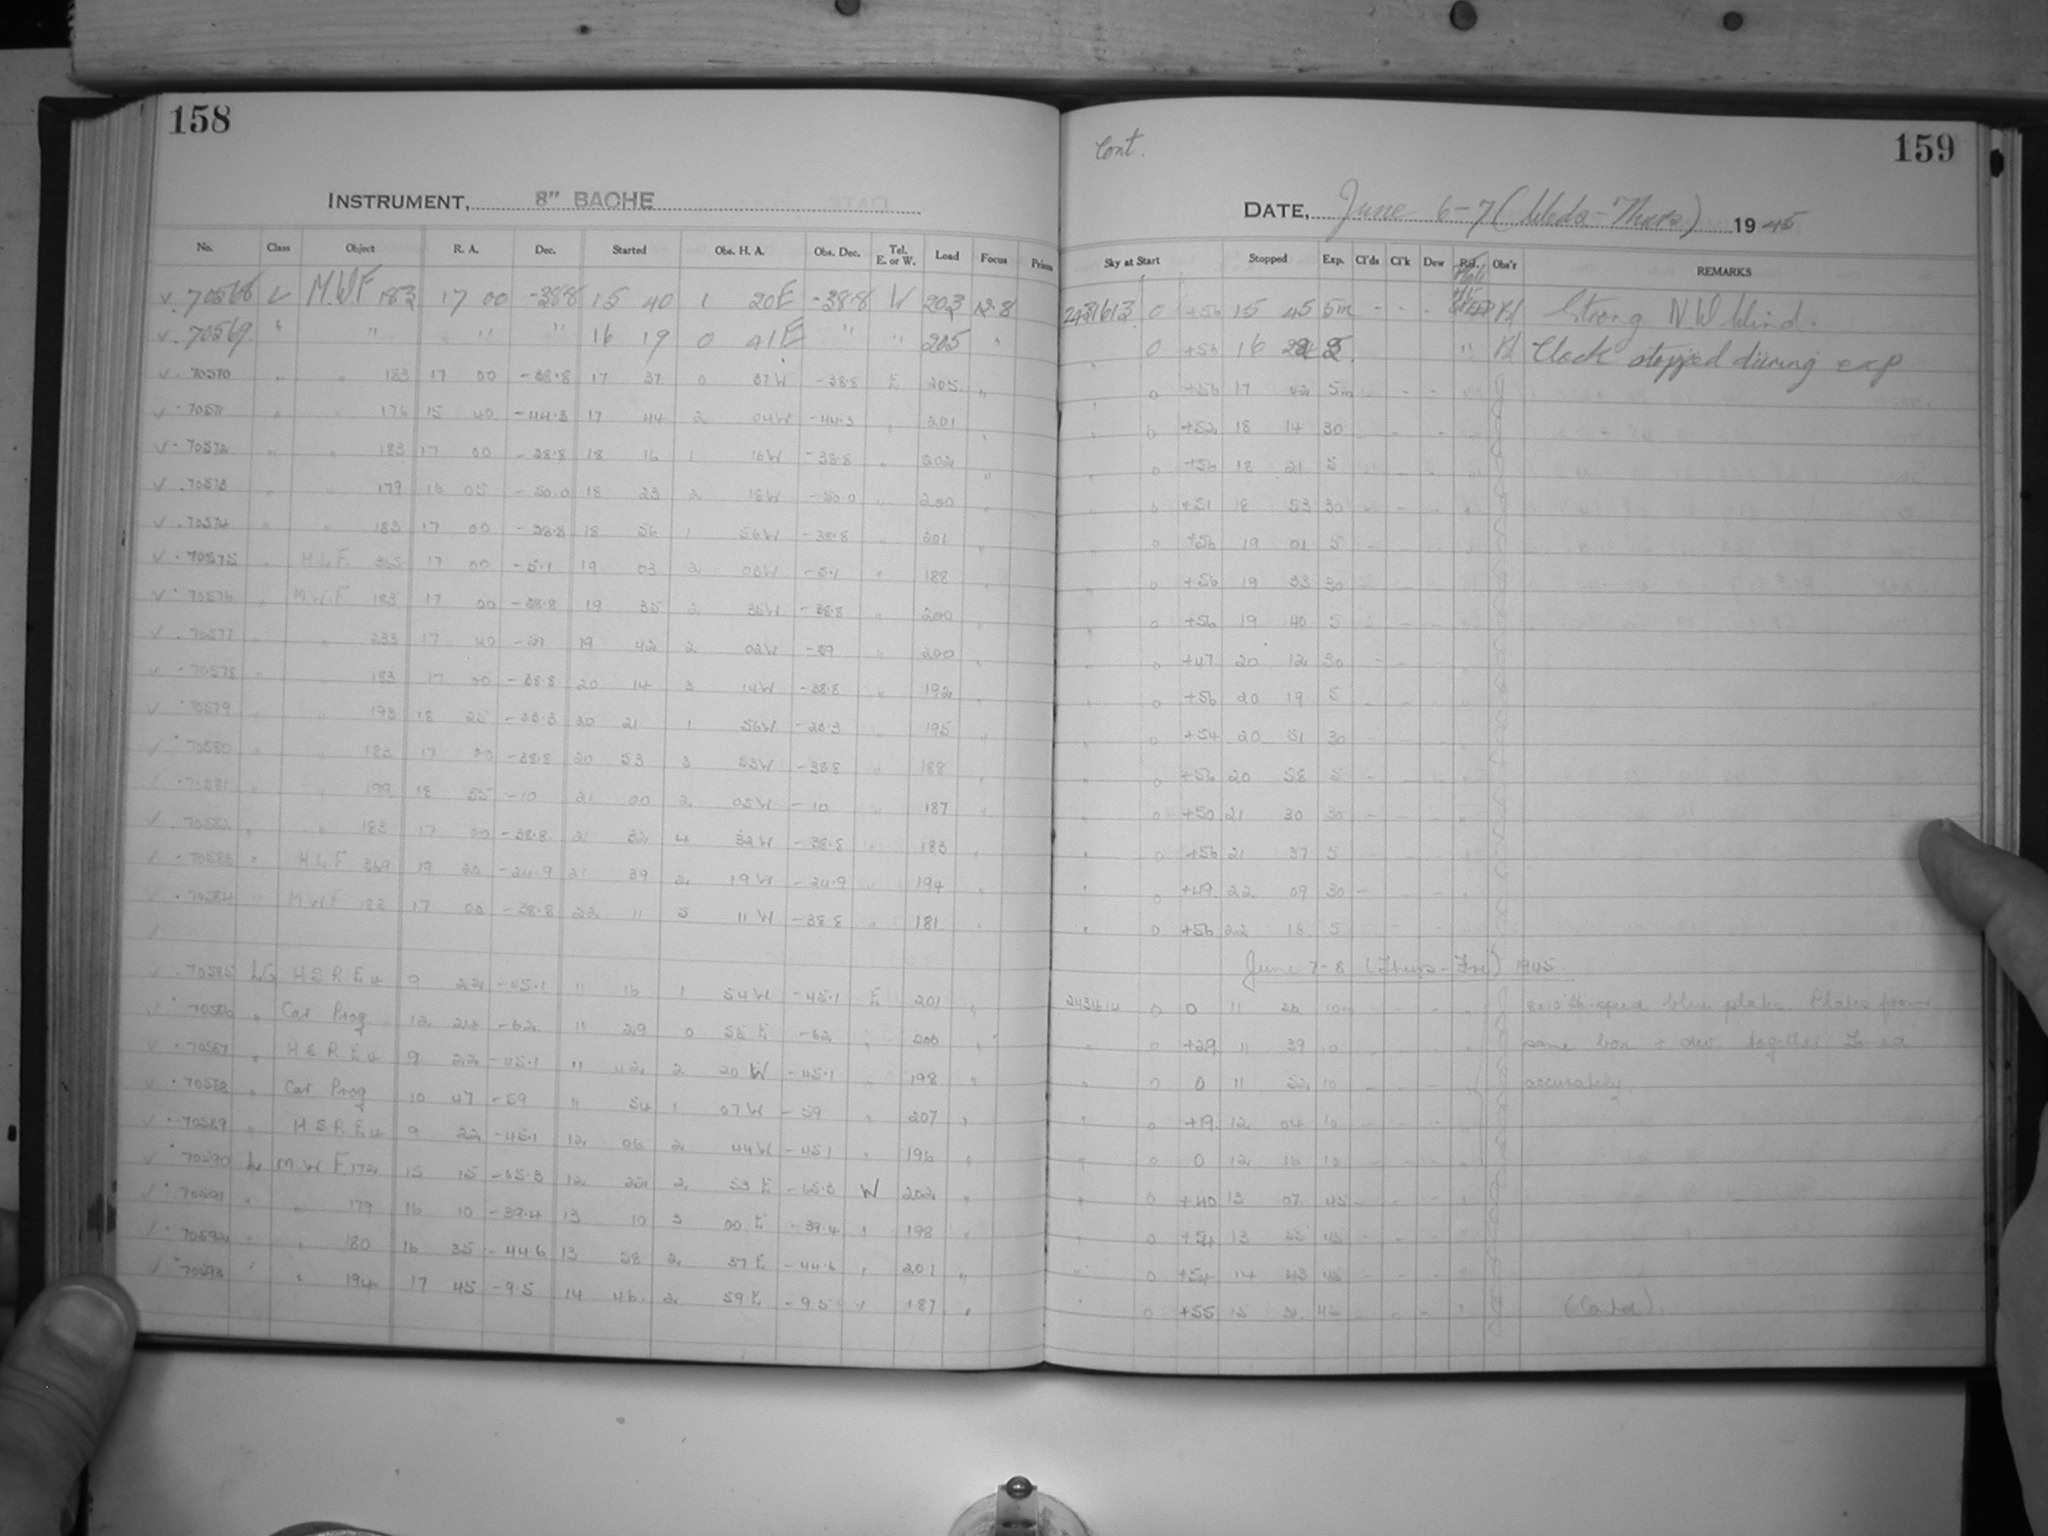 158
INSTRUMENT, 8" BACHE
No. Class Object R. A. Dec. Started Obs. H. A. Obs. Dec. Tel. E. or W. Load Focus Prism
70568 L M.W.F 183 17 00 -38.8 15 40 1 20E -38.8 W 203 12.8
70569 " " " " " 16 19 0 41E " " 205 "
70570 " " 183 17 00 -38.8 17 37 0 37W -38.8 E 205 "
70571 " " 176 15 40 -44.3 17 44 2 04W -44.3 " 201 "
70572 " " 183 17 00 -38.8 18 16 1 16W -38.8 " 202 "
70573 " " 179 16 05 -50.0 18 23 2 18W -50.0 " 200 "
70574 " " 183 17 00 -38.8 18 56 1 56W -38.8 " 201 "
70575 " H.L.F. 365 17 00 -5.1 19 03 2 03W -5.1 " 188 "
70576 " M.W.F. 183 17 00 -38.8 19 35 2 35W -38.8 " 200 "
70577 " " 233 17 40 -59 19 42 2 02W -59 " 200 "
70578 " " 183 17 00 -38.8 20 14 3 14W -38.8 " 192 "
70579 " " 193 18 25 -20.3 20 21 1 56W -20.3 " 195 "
70580 " " 183 17 00 -38.8 20 53 3 53W -38.8 " 188 "
70581 " " 199 18 55 -10 21 00 2 05W -10 " 187 "
70582 " " 183 17 00 -38.8 21 32 4 32W -38.8 " 183 "
70583 " H.L.F 369 19 20 -24.9 21 39 2 19W -24.9 " 194 "
70584 " M.W.F 183 17 00 -38.8 22 11 5 11W -38.8 " 181 "
70585 H.S.R.E4 9 22 -45.1 11 16 1 54W -45.1 E 201 "
70586 " Car Prog 12 24 -62 11 29 0 55E -62 "
70587 " H.S.R.E4 9 22 -45.1 11 42 2 20W -45.1 " 198 "
70588 " Car Prog 10 47 -59 11 54 1 07W -59 " 207 "
70589 " H.S.R.E4 9 22 -45.1 12 06 2 44W -45.1 " 196 "
70590 L M W F 172 15 15 -65.3 12 22 2 53E -65.3 W 202 "
70591 " " 179 16 10 -39.4 13 10 3 00E -39.4 " 198 "
70592 " " 180 16 35 -44.6 13 58 2 37E -44.6 " 201 "
70593 " " 194 17 45 -9.5 14 46 2 59E -9.5 " 187 "
Cont.
159
DATE, June 6-7 (Weds-Thurs) 1945
Sky at Start Stopped Exp. Cl'ds Cl'k Dew Rel. Obs'r REMARKS
2431613 0 +56 15 45 5m - - - Strong N.W Wind.
" 0 +53 16 " Clock stopped during exp
" 0 +56 17 42 5m - - -
" 0 +52 18 14 30 - - -
" 0 +56 18 21 5 - - -
" 0 +51 18 53 30 - - -
" 0 +56 19 01 5 - - -
" 0 +56 19 33 30 - - -
" 0 +56 19 40 5 - - -
" 0 +47 20 12 30 - - -
" 0 +56 20 19 5 - - -
" 0 +54 20 51 30 - - -
" 0 +56 20 58 5 - - -
" 0 +50 21 30 30 - - -
" 0 +56 21 37 5 - - -
" 0 +49 22 09 30 - - -
" 0 +56 22 16 5 - - -
June 7-8 (Thurs-Fri) 1945
2431614 0 0 11 26 10m - - - speed blue plates. Plates from
" 0 +29 11 39 10 - - - same box + dev. together Timed
" 0 0 11 52 10 - - - accurately.
" 0 +19 12 04 10 - - -
" 0 0 12 16 10 - - -
" 0 +40 13 07 45 - - -
" 0 +54 13 55 45 - - -
" 0 +54 14 43 45 - - -
" 0 +55 15 31 45 - - - (Contd).